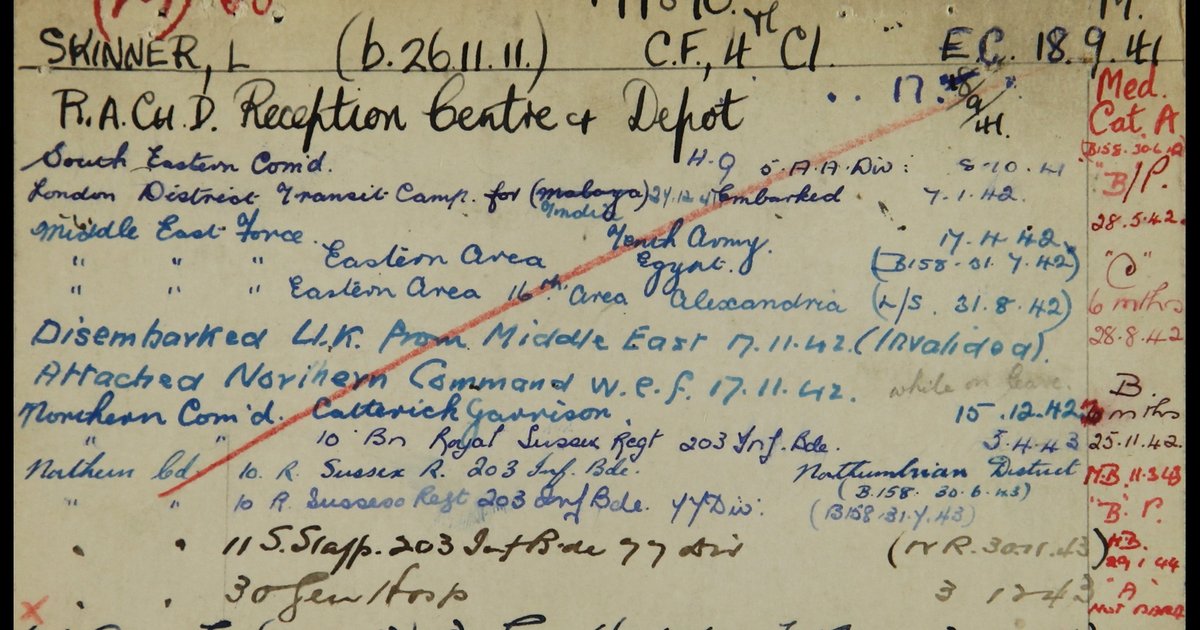 SKINNER, L (b. 26.11.11.) C.F., 4th Cl. E.C. 18.9.41
R.A.CH.D. Reception Centre & Depot . . 17. 9/41. Med. Cat. A
(B158. 30.6.42)
South Eastern Com'd. H.Q 5 A.A. Div: 8.10.41
London District Transit Camp. for (malaya) India 24.12.41 Embarked 7.1.42. "B"/P.
28.5.42.
Middle East Force. Tenth Army. 17.4.42.
" " " Eastern Area Egypt. (B158.31.7.42) "C"
" " " Eastern Area 16th Area Alexandria (L/S. 31.8.42) 6 mths
28.8.42
Disembarked U.K. from Middle East 17.11.42. (Invalided).
Attached Northern Command w.e.f. 17.11.42. while on leave. B.
Northern Com'd. Catterick Garrison. 15.12.42 6 mths
" " 10 Bn Royal Sussex Regt 203 Inf. Bde. 3.4.43 25.11.42.
Northern Cd. 10. R. Sussex R. 203 Inf. Bde. Northumbrian District M.B 11.3.43
(B.158. 30.6.43)
" " 10 R. Sussess Regt 203 Inf Bde. 77 Div: (B158.31.7.43) "B". P.
. . 11 S. Staff. 203 Inf Bde 77 Div (W R. 30.11.43) M.B.
29.1.44
. . 30 Gen Hosp 3 12 43 "A"
X